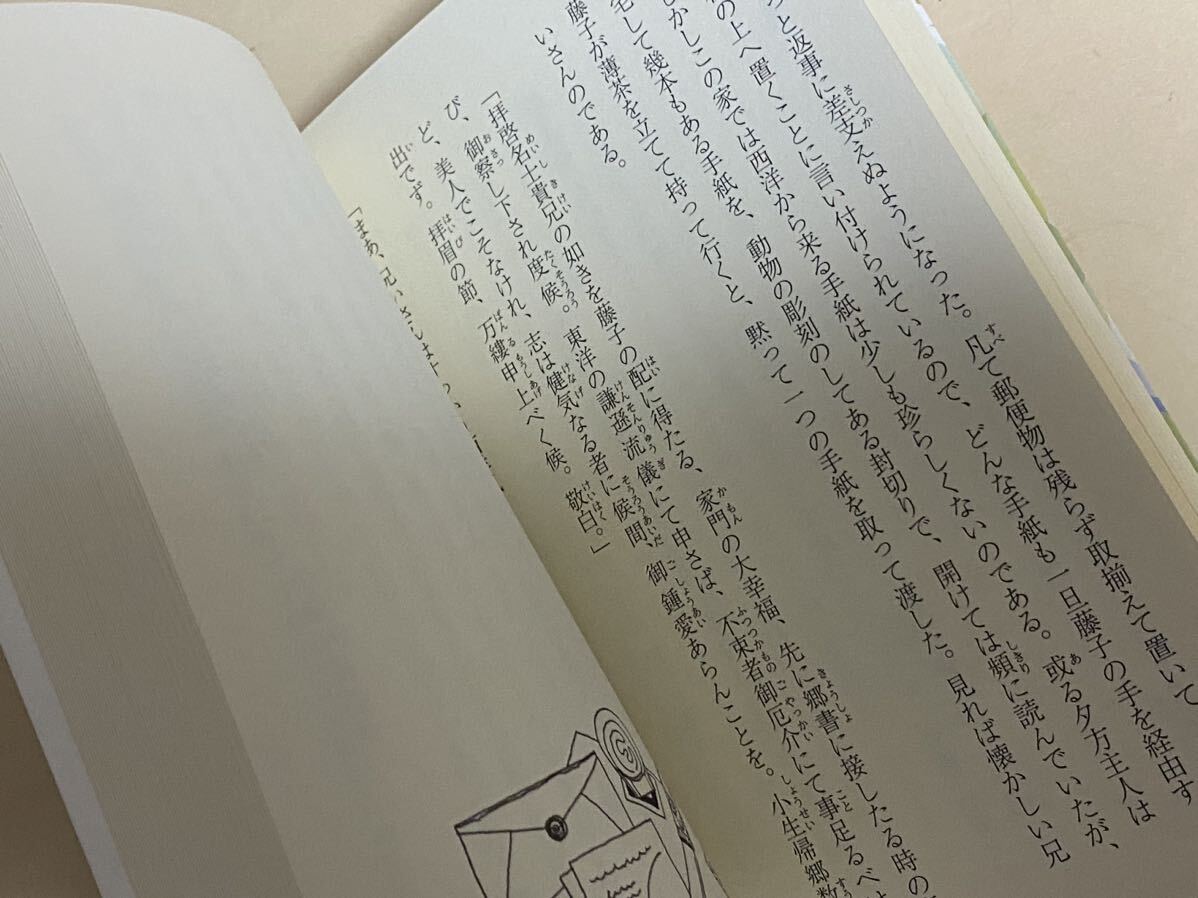 っと返事に差支えぬようになった。凡て郵便物は残らず取揃えて置いて
の上へ置くことに言い付けられているので、どんな手紙も一旦藤子の手を経由す
かしこの家では西洋から来る手紙は少しも珍らしくないのである。或る夕方主人は
宅して幾本もある手紙を、動物の彫刻のしてある封切りで、開けては頻に読んでいたが、
藤子が薄茶を立てて持って行くと、黙って一つの手紙を取って渡した。見れば懐かしい兄
いさんのである。
「拝啓名士貴兄の如きを藤子の配に得たる、家門の大幸福、先に郷書に接したる時の
び、御察し下され度候。東洋の謙遜流儀にて申さば、不束者御厄介にて事足るべ
ど、美人でこそなけれ、志は健気なる者に候間、御鍾愛あらんことを。小生帰郷数
出でず。拝眉の節、万縷申上べく候。敬白。」
「まあ、兄いさんは